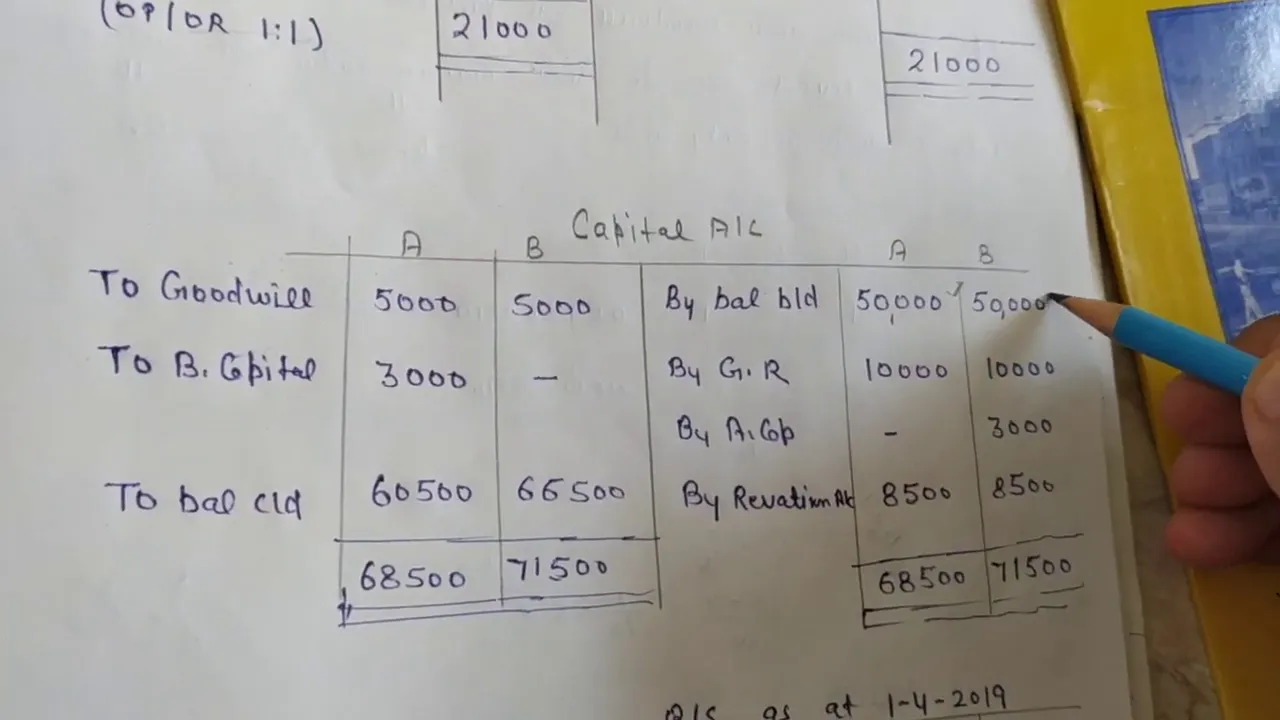 (OP/OR 1:1)
21000
21000
Capital A/C
A B A B
To Goodwill 5000 5000 By bal b/d 50,000 50,000
To B. Cpital 3000 – By G.R 10000 10000
By A.Cap – 3000
To bal c/d 60500 66500 By Revation A/c 8500 8500
68500 71500 68500 71500
as at 1-4-2019